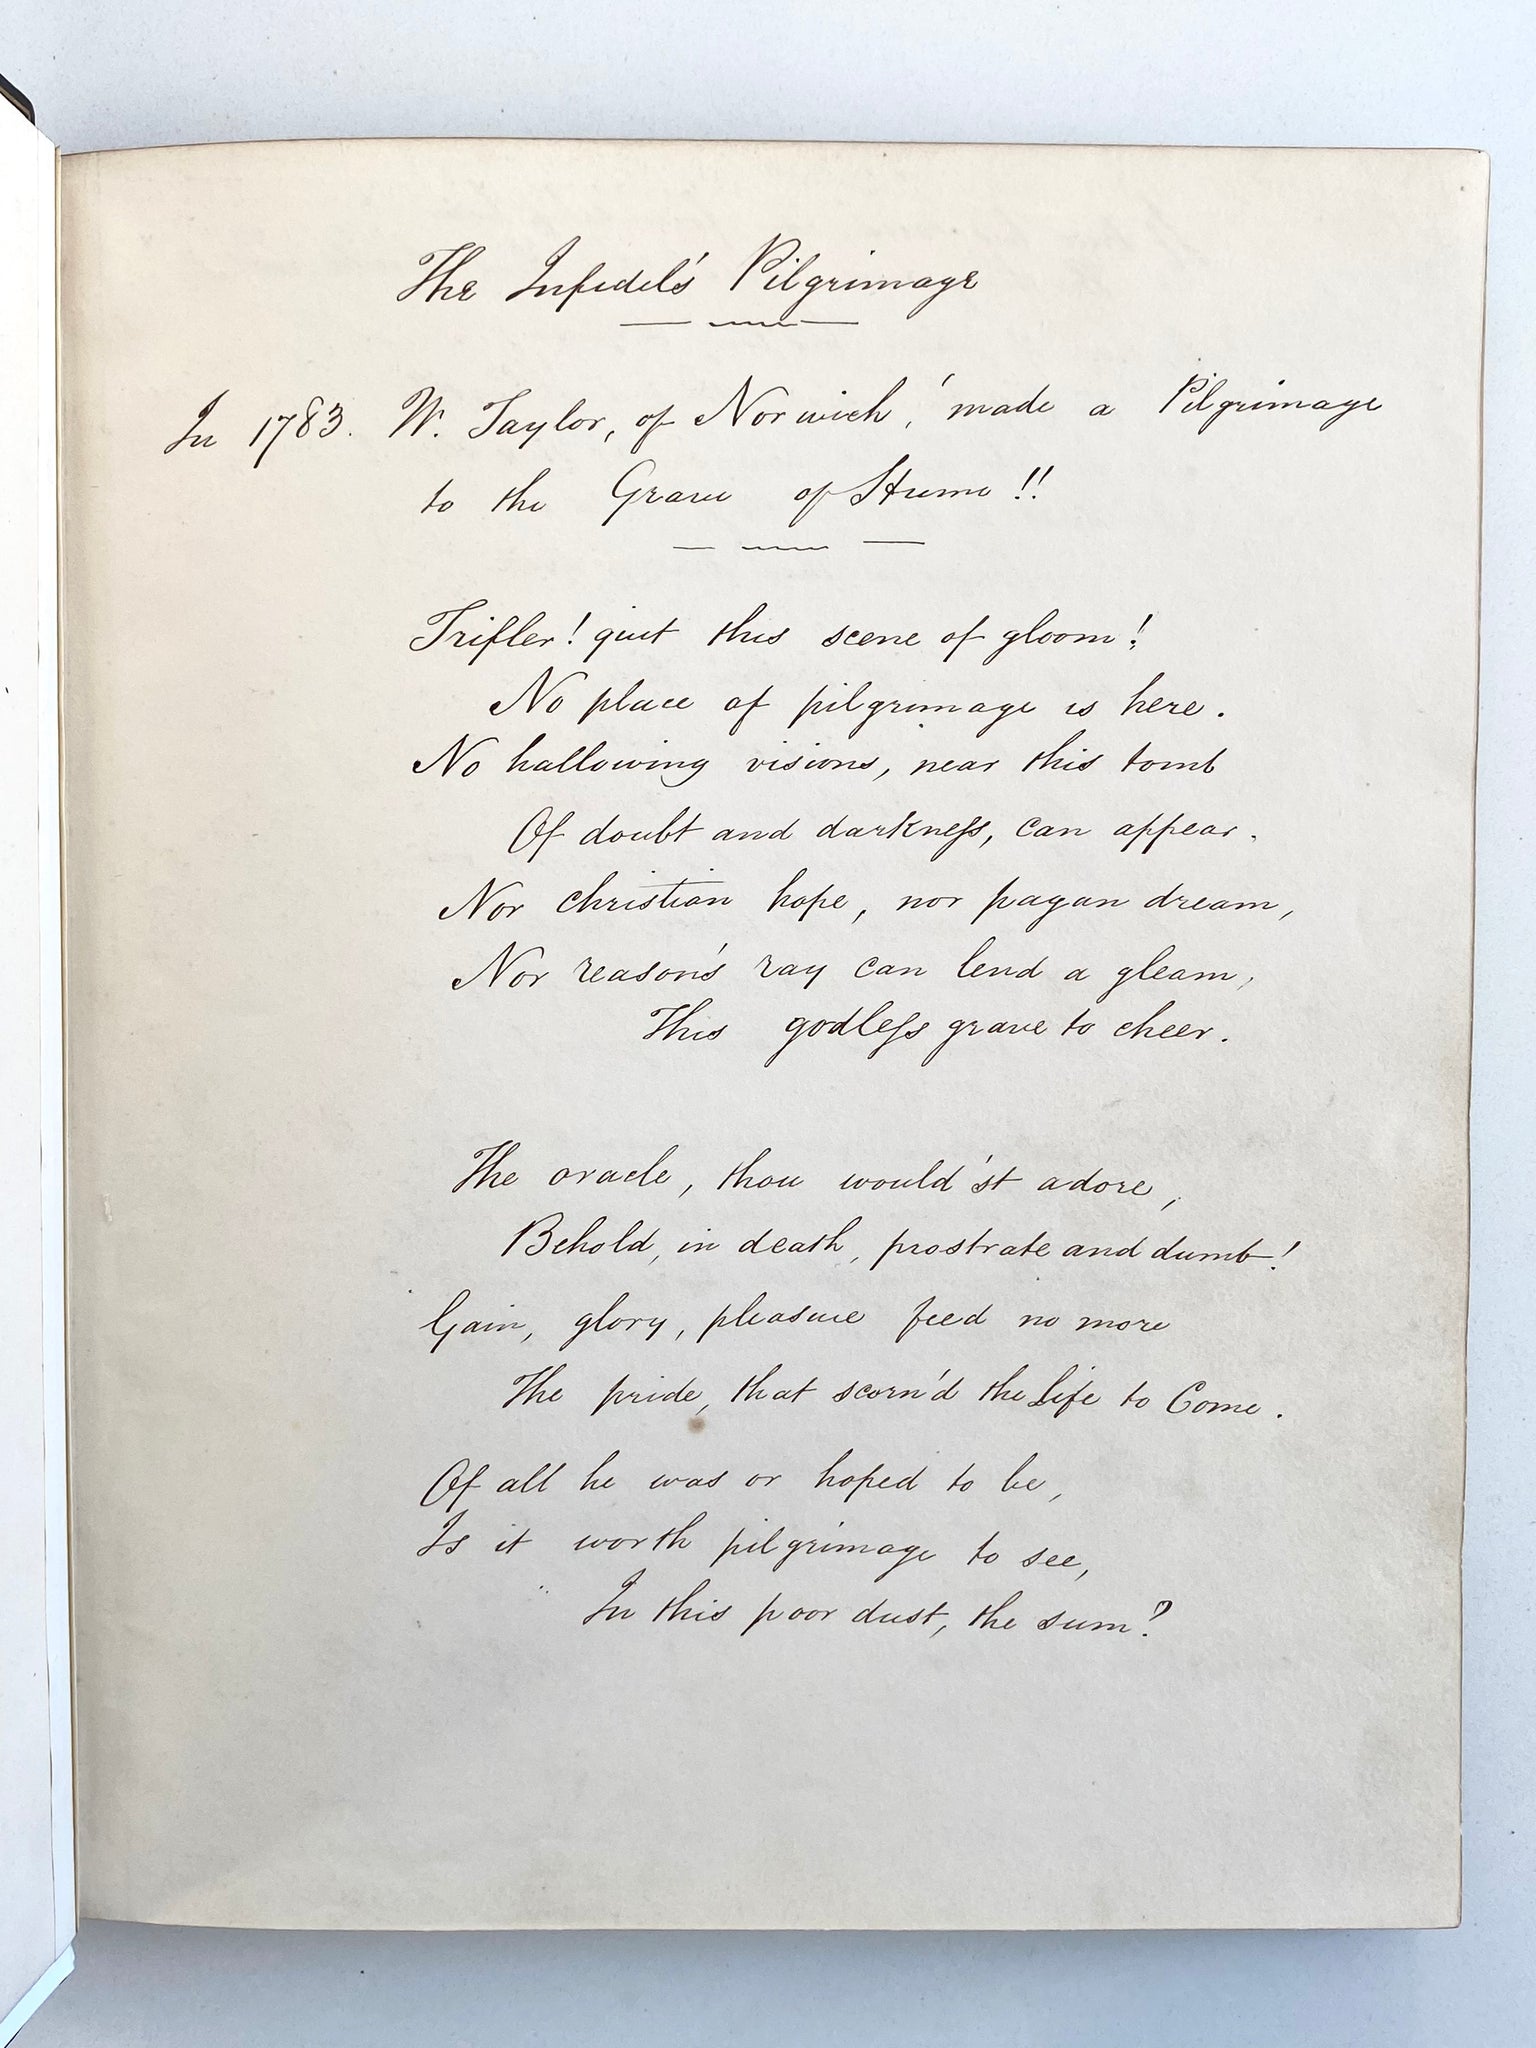 The Infidel's Pilgrimage
In 1783. W. Taylor, of Norwich,' made a Pilgrimage
to the Grave of Hume!!
Trifler! quit this scene of gloom!
No place of pilgrimage is here.
No hallowing visions, near this tomb
Of doubt and darkneſs, can appear.
Nor christian hope, nor pagan dream,
Nor reason's ray can lend a gleam,
This godleſs grave to cheer.
The oracle, thou would'st adore,
Behold, in death, prostrate and dumb!
Gain, glory, pleasure feed no more
The pride, that scorn'd the Life to Come.
Of all he was or hoped to be,
Is it worth pilgrimage to see,
In this poor dust, the sum?